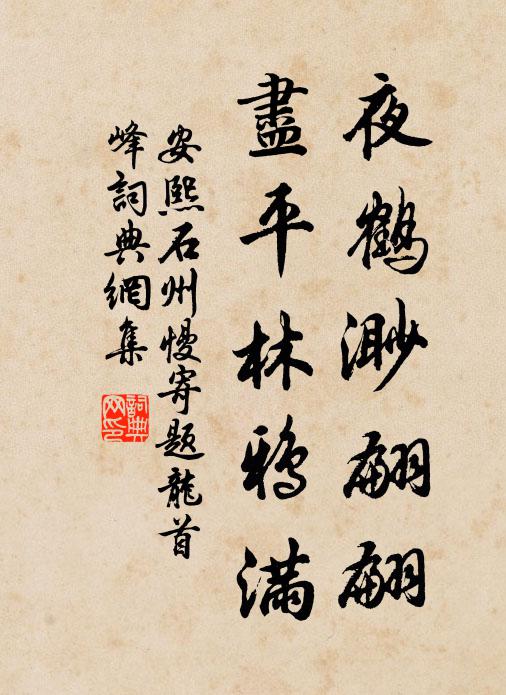 夜鶴渺翩翩
盡平林鴉滿
安熙石州慢寄題龍首
峰詞典網集
詞典網印